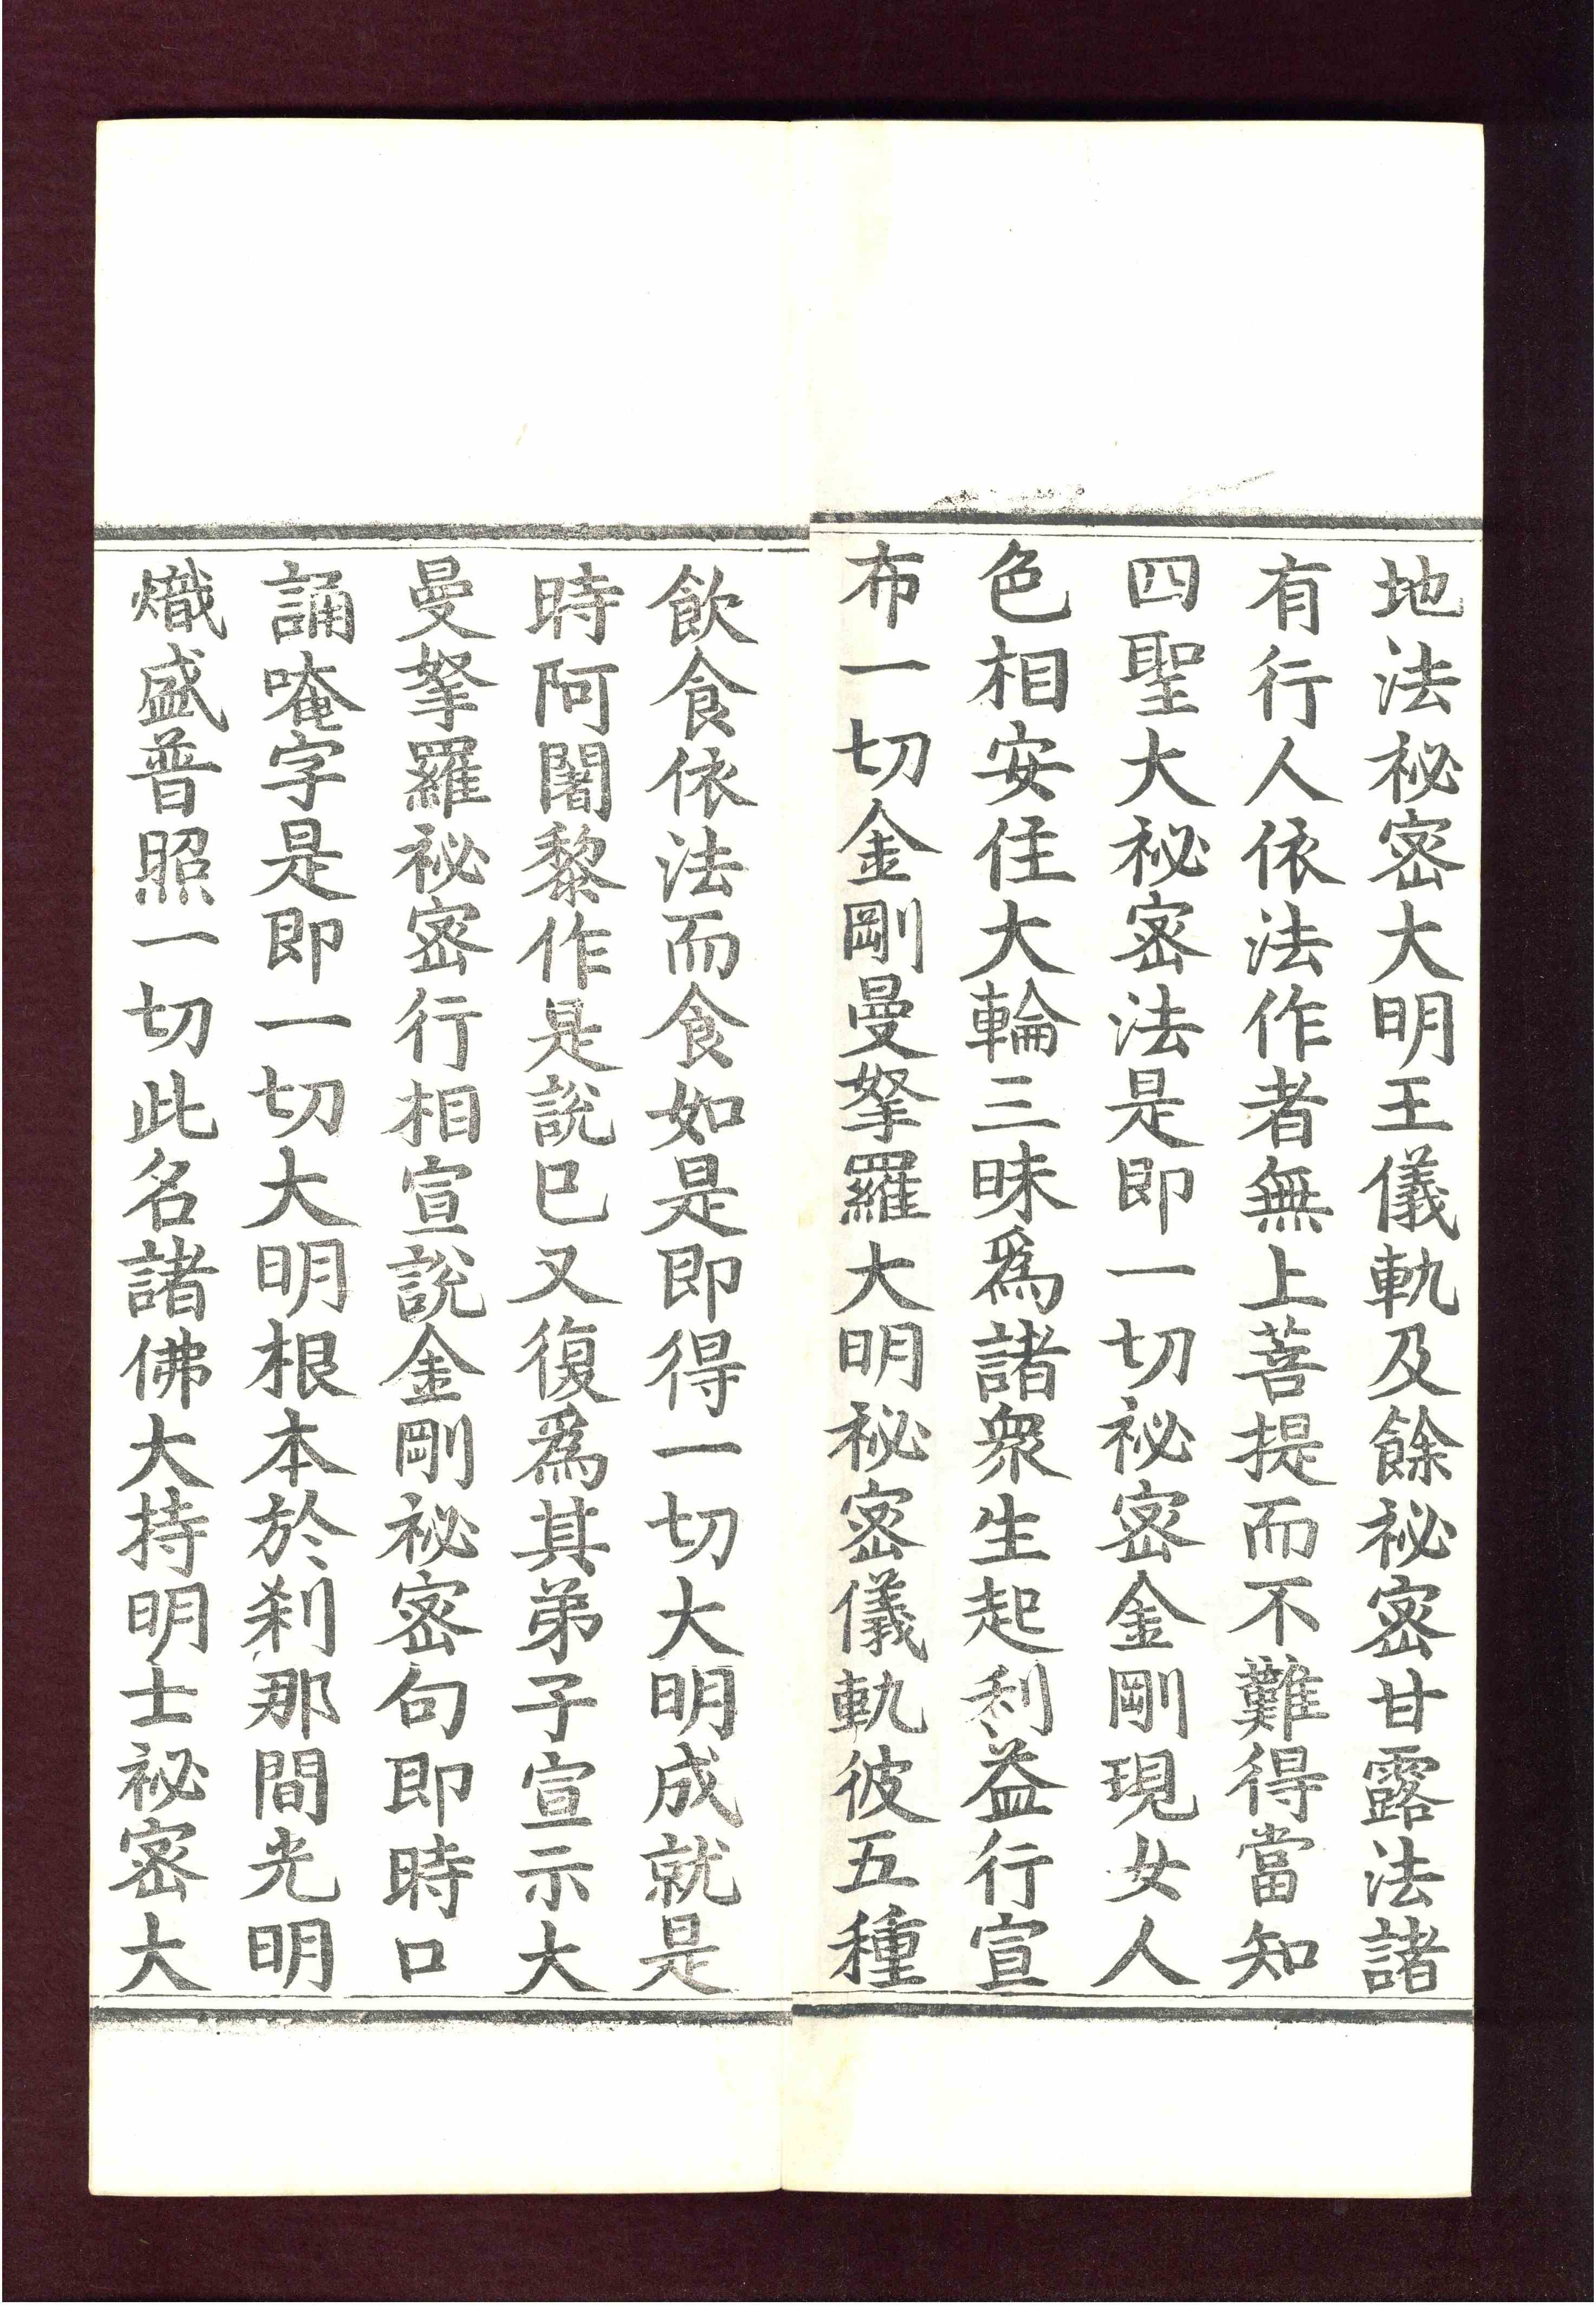 地法祕密大明王儀軌及餘祕密甘露法諸
有行人依法作者無上菩提而不難得當知
四聖大祕密法是即一切祕密金剛現女人
色相安住大輪三昧爲諸衆生起利益行宣
布一切金剛曼拏羅大明祕密儀軌彼五種
飲食依法而食如是即得一切大明成就是
時阿闍黎作是說已又復爲其弟子宣示大
曼拏羅祕密行相宣說金剛祕密句即時口
誦唵字是即一切大明根本於刹那間光明
熾盛普照一切此名諸佛大持明士祕密大